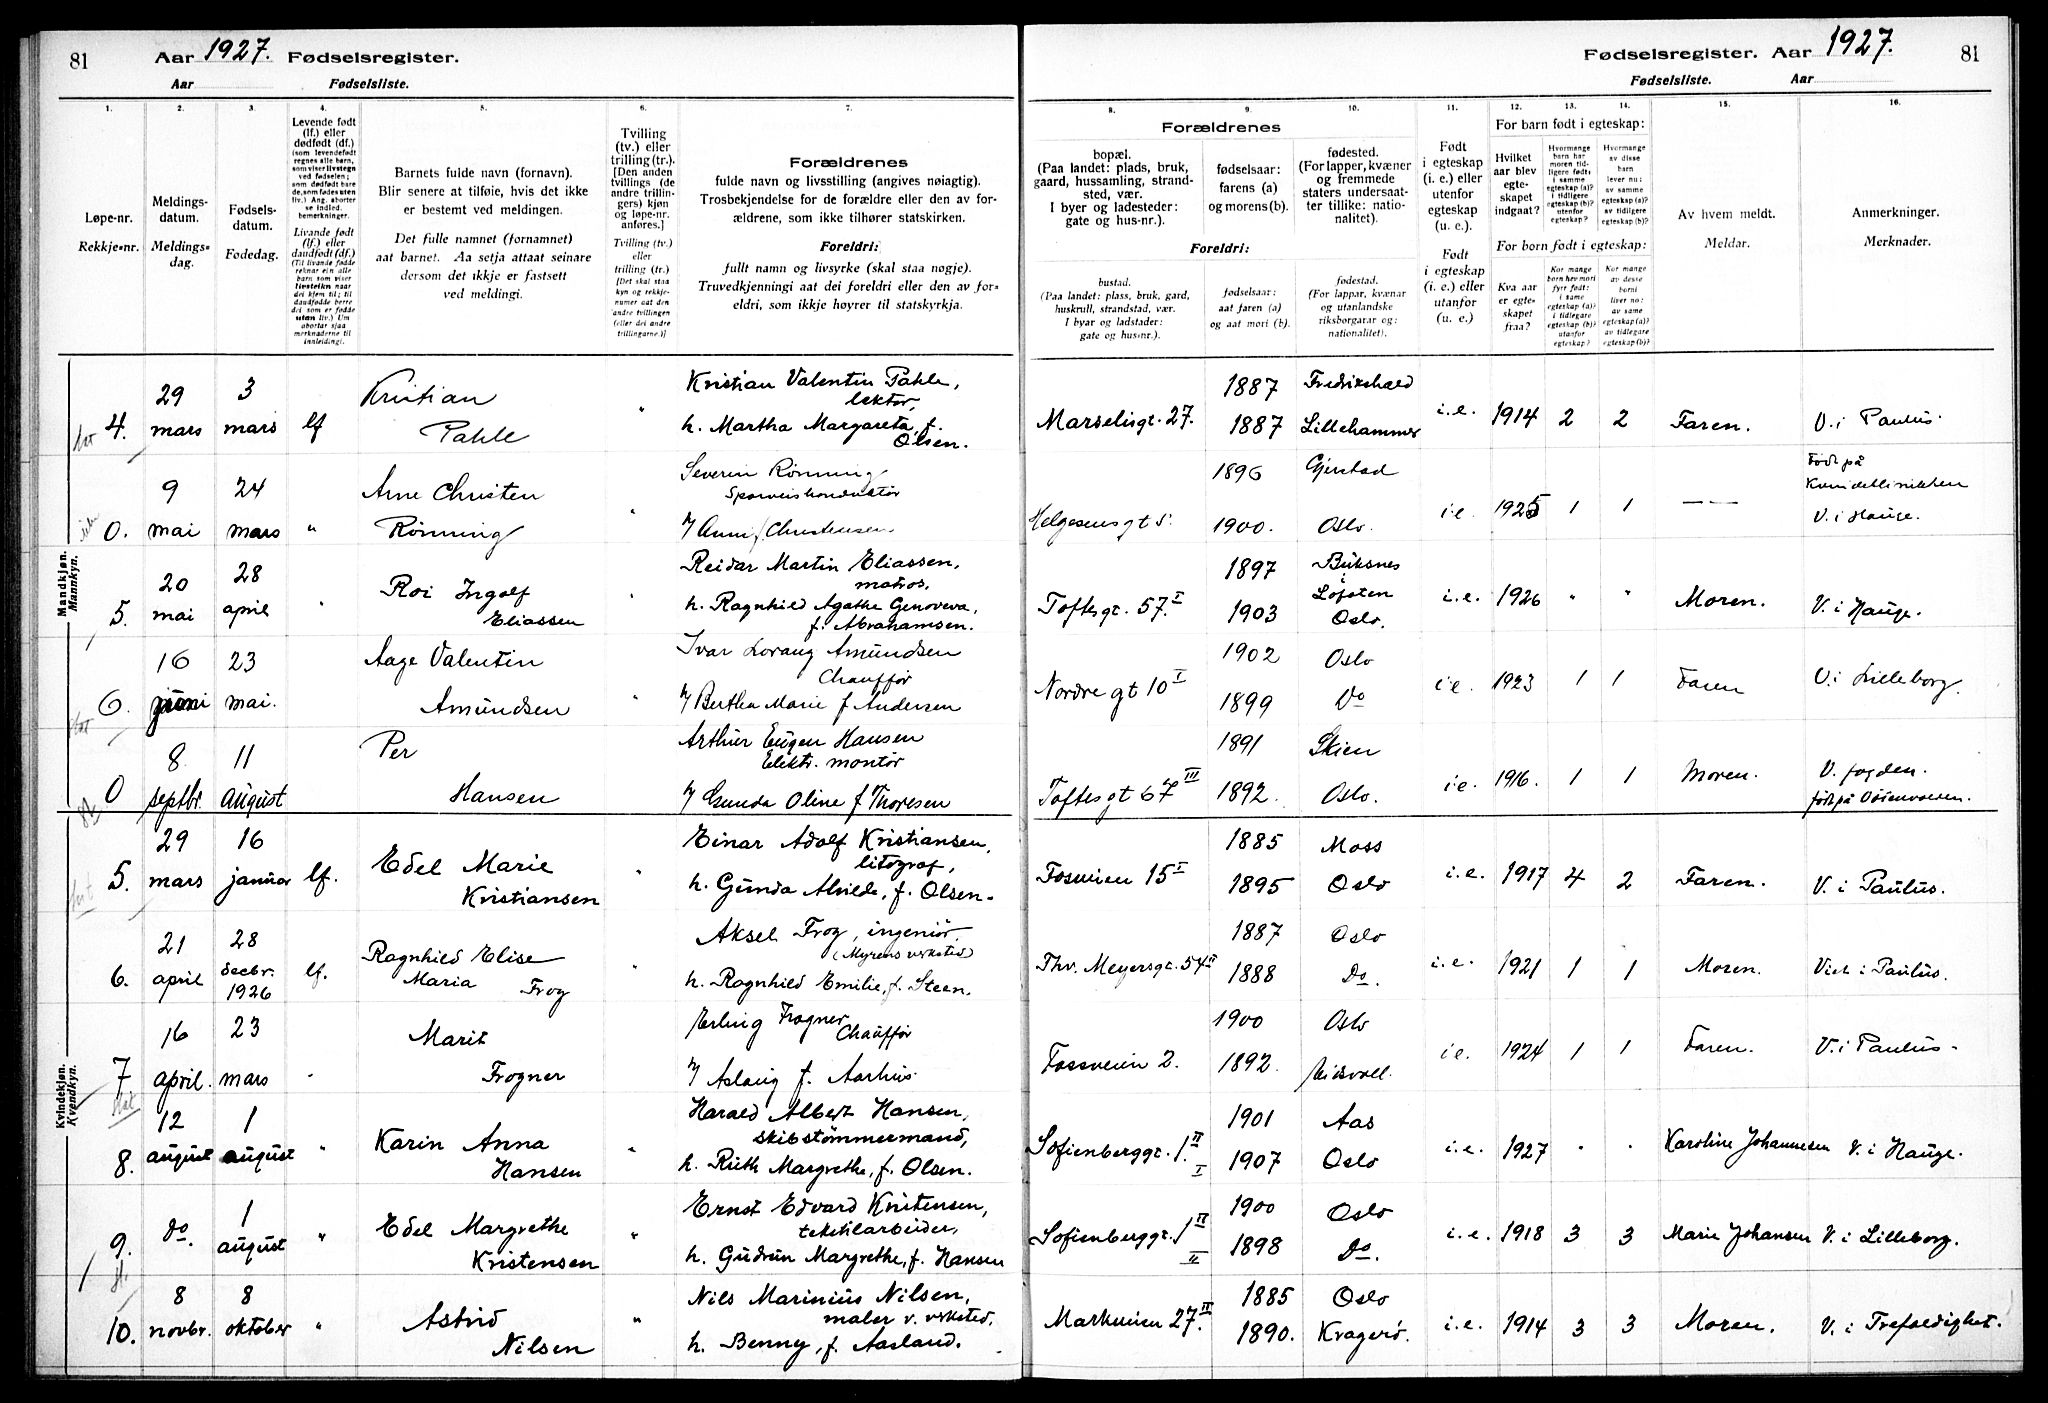 81
Aar 1927. Fødselsregister.
Aar
Fødselsliste.
Fødselsregister. Aar 1927.
81
Fødselsliste.
Aar
1.
2.
3.
4.
5.
6.
7.
8.
9.
10.
11.
12.
13.
14.
15.
16.
Løpe-nr.
Rekkje-nr.
Meldings-
datum.
Meldings-
dag.
Fødsels-
datum.
Fødedag.
Levende født
(lf.) eller
dødfødt (df.)
Barnets fulde navn (fornavn).
Blir senere at tilføie, hvis det ikke
er bestemt ved meldingen.
Det fulle namnet (fornamnet)
aat barnet. Aa setja attaat seinare
dersom det ikkje er fastsett
ved meldingi.
Tvilling
(tv.) eller
trilling (tr.).
[Den anden
tvillings (de
andre trillin-
gers) kjøn
og løpe-nr.
anføres.]
Forældrenes
fulde navn og livsstilling (angives nøiagtig).
Trosbekjendelse for de forældre eller den av for-
ældrene, som ikke tilhører statskirken.
Foreldri:
fullt namn og livsyrke (skal staa nøgje).
Truvedkjenningi aat dei foreldri eller den av for-
eldri, som ikkje høyrer til statskyrkja.
Forældrenes
bopæl.
(Paa landet: plads, bruk,
gaard, hussamling, strand-
sted, vær.
I byer og ladesteder:
gate og hus-nr.).
fødselsaar:
farens (a)
og morens (b).
fødested.
(For lapper, kvæner
og fremmede
staters undersaat-
ter tillike: natio-
nalitet).
Foreldri:
bustad.
(Paa landet: plass, bruk, gard,
huskrull, strandstad, vær.
I byar og ladstader:
gate og hus-nr.).
fødselsaar:
aat faren (a)
og aat mori (b).
fødestad.
(For lappar, kvænar
og utanlandske
riksborgarar og:
nationalitet).
Født
i egteskap
(i. e.) eller
utenfor
egteskap
(u. e.).
Født
i egteskap
(i. e.) eller
utanfor
(u. e.)
For barn født i egteskap:
Hvilket
aar blev
egte-
skapet
indgaat?
For born født i egteskap:
Kva aar
er egte-
skapet
fraa?
Av hvem meldt.
Meldar.
Anmerkninger.
Merknader.
Mandkjøn.
Mannkyn.
4. 29 mars 3 mars lf Kristian Pahle " Kristian Valentin Pahle, lektor, h. Martha Margareta, f. Olsen. Marselisgt. 27. 1887 1887 Fredrikshald Lillehammer i.e. 1914 2 2 Faren. V. i Paulus.
0. 9 mai 24 mars " Arne Christen Rønning " Severin Rønning Sporveiskonduktør Anni f. Christensen Helgesens gt 5. 1896 1900. Gjerstad Oslo. i.e. 1925 1 1 — — Født på Kvindeklinikken V. i Hauge.
5. 20 mai 28 april " Roi Ingolf Eliassen Reidar Martin Eliassen, matros, h. Ragnhild Agathe Genoveva, f. Abrahamsen. Toftesgt. 57. I 1897 1903 Buksnes i Lofoten Oslo. i.e. 1926 " " Moren. V. i Hauge.
6. 16 juni 23 mai. Aage Valentin Amundsen " Ivar Lorang Amundsen Chauffør Bertha Marie f Andersen Nordre gt 10 I 1902 1899 Oslo Do i.e. 1923 1 1 Faren V. i Lilleborg.
0 8 septbr. 11 august Per Hansen Arthur Eugen Hansen Elektr. montør Gunda Oline f Thoresen Toftesgt 67 III 1891 1892. Skien Oslo. i.e. 1916. 1 1 Moren. V. fogden. født på
Kvindekjøn.
Kvendkyn.
5. 29 mars 16 januar lf. Edel Marie Kristiansen " Einar Adolf Kristiansen, litograf, h. Gunda Alvilde, f. Olsen. Fosveien 15 I 1885 1895 Moss Oslo i.e. 1917 4 2 Faren. V. i Paulus.
6. 21 april 28 decbr. 1926 lf. Ragnhild Elise Maria Frog " Aksel Frog, ingeniør, (Myrens verksted) h. Ragnhild Emilie, f. Steen. Thv. Meyersgt. 54 II 1887 1888 Oslo Do. i.e. 1921 1 1 Moren. Viet i Paulus.
7 16 april. 23 mars " Marit Frogner Erling Frogner Chauffør Aslaug f. Aarhus. Fossveien 2. 1900 1892. Oslo Eidsvoll. i.e. 1924 1 1 Faren. V. i Paulus.
8. 12 august 1 august " Karin Anna Hansen " Harald Albert Hansen, skibstømmermand, h. Ruth Margrethe, f. Olsen. Sofienberggt. 1. II I 1901 1907 Aas Oslo i.e. 1927 " " Karoline Johannesen V. i Hauge.
9. Do. 1 august " Edel Margrethe Kristensen " Ernst Edvard Kristensen, tekstilarbeider, h. Gudrun Margrethe, f. Hansen Sofienberggt. 1 II II 1900 1898 Oslo Do. i.e. 1918 3 3 Marie Johansen V. i Lilleborg.
10. 8 novbr. 8 oktober " Astrid Nilsen " Nils Marinius Nilsen, maler v. verksted, h. Benny, f. Aasland. Markveien 27. III 1885 1890. Oslo Kragerø. i.e. 1914 3 3 Moren. V. i Trefoldighet.